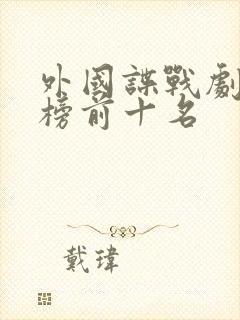 外國諜戰劇
榜前十名
戴瑋